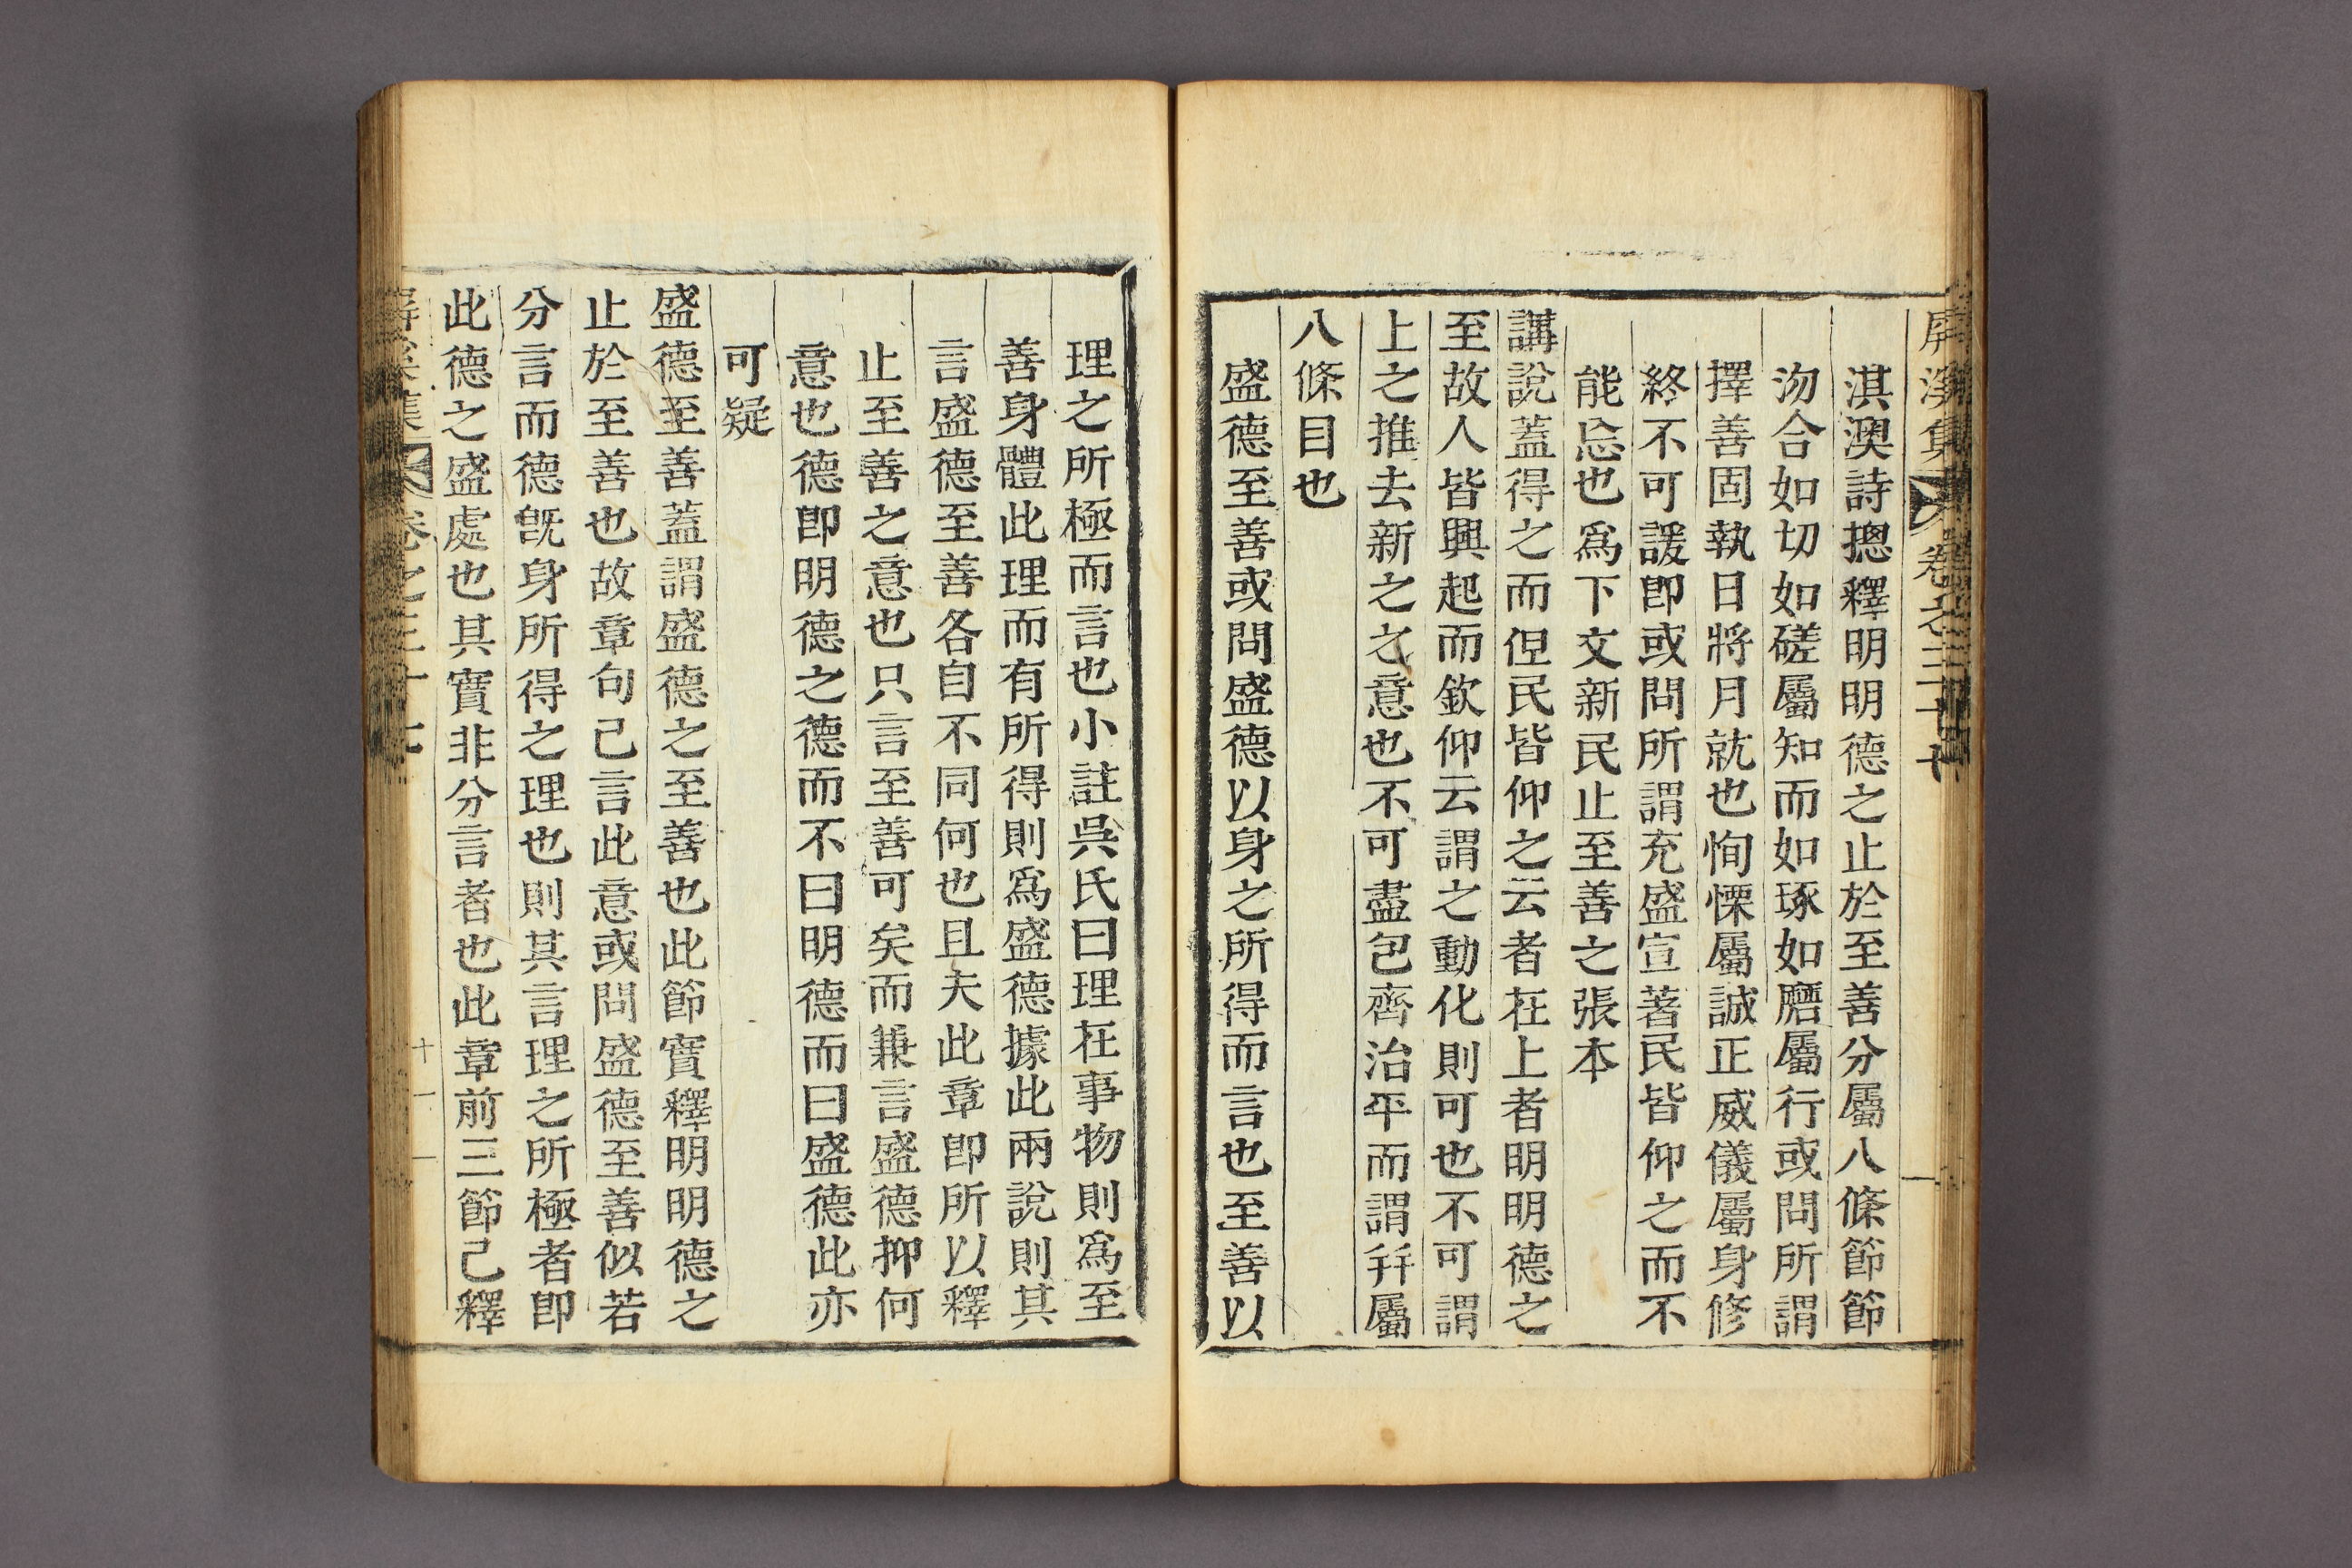 屏溪集 卷之三十七
淇澳詩摠釋明明德之止於至善分屬八條節節
沕合如切如磋屬知而如琢如磨屬行或問所謂
擇善固執日將月就也恂慄屬誠正威儀屬身修
終不可諼卽或問所謂充盛宣著民皆仰之而不
能忘也爲下文新民止至善之張本
講說蓋得之而但民皆仰之云者在上者明明德之
至故人皆興起而欽仰云謂之動化則可也不可謂
上之推去新之之意也不可盡包齊治平而謂幷屬
八條目也
盛德至善或問盛德以身之所得而言也至善以
理之所極而言也小註吳氏曰理在事物則爲至
善身體此理而有所得則爲盛德據此兩說則其
言盛德至善各自不同何也且夫此章卽所以釋
止至善之意也只言至善可矣而兼言盛德抑何
意也德卽明德之德而不曰明德而曰盛德此亦
可疑
盛德至善蓋謂盛德之至善也此節實釋明明德之
止於至善也故章句已言此意或問盛德至善似若
分言而德旣身所得之理也則其言理之所極者卽
此德之盛處也其實非分言者也此章前三節已釋
屏溪集 卷之三十七 十一